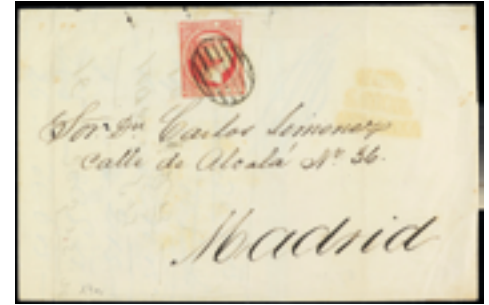 Sor Dn Carlos Simenez
Calle de Alcalá Nº 36.
Madrid